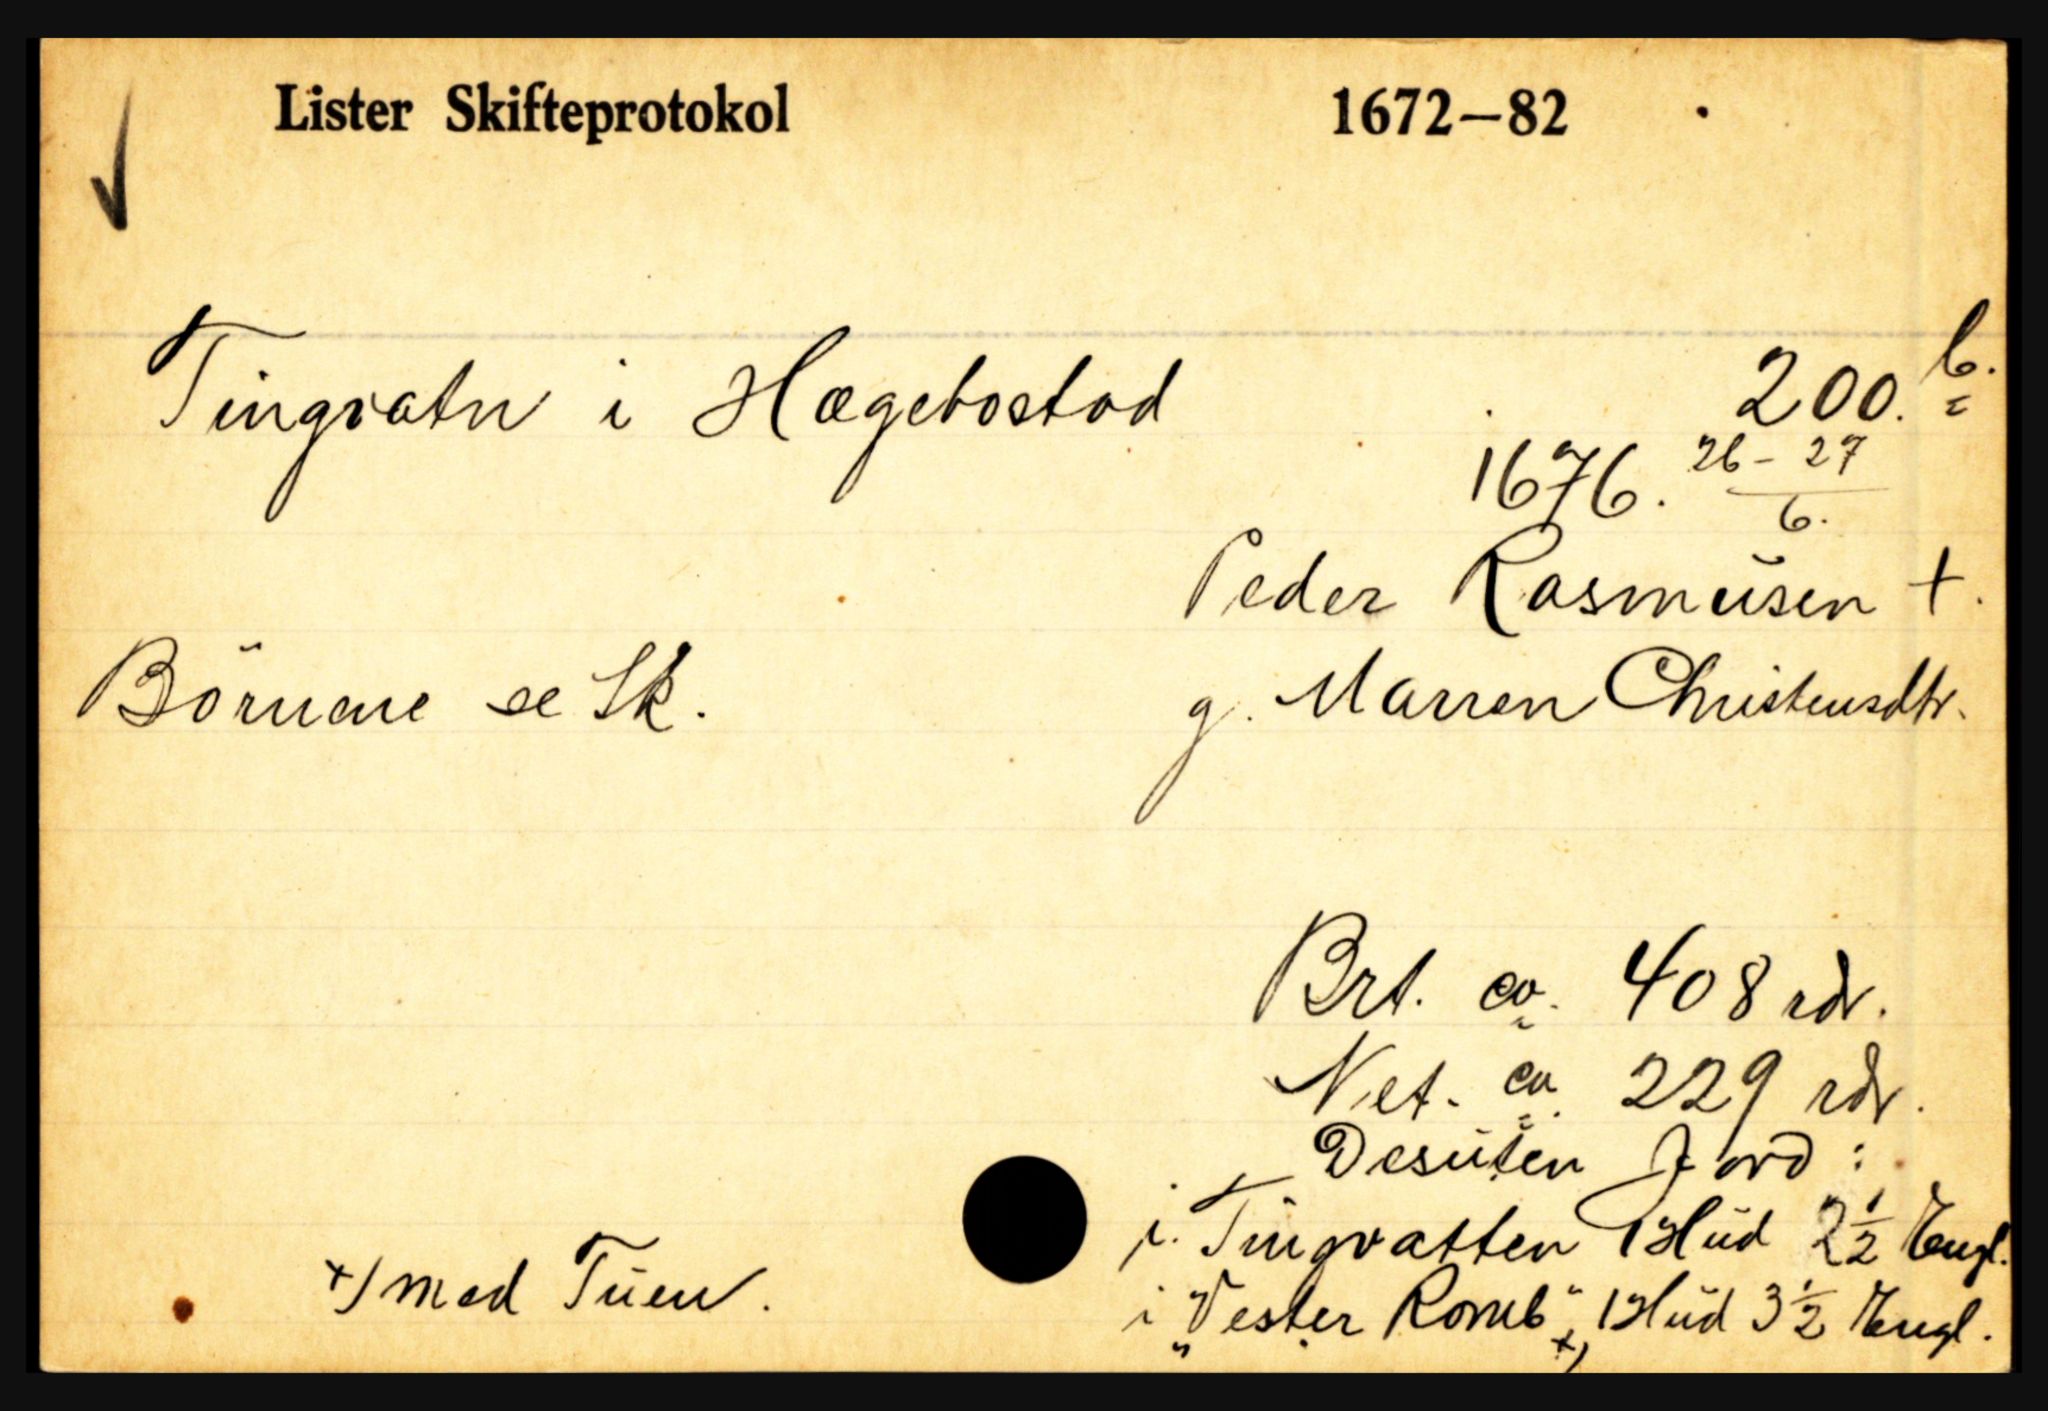 Lister Skifteprotokol 1672—82
Tingvatn i Hægebostad 200. b.
1676. 26-27/6.
Peder Rasmusen +.
Börnene se Sk. g. Marren Christensdtr.
Brt. ca. 408 rdr.
Net. ca. 229 rdr.
Desuten Jord:
i. Tingvatten 1 Hud 2½ Engl.
+) med Tuen. i „Vester Romb"+) 1 Hud 3½ Engl.